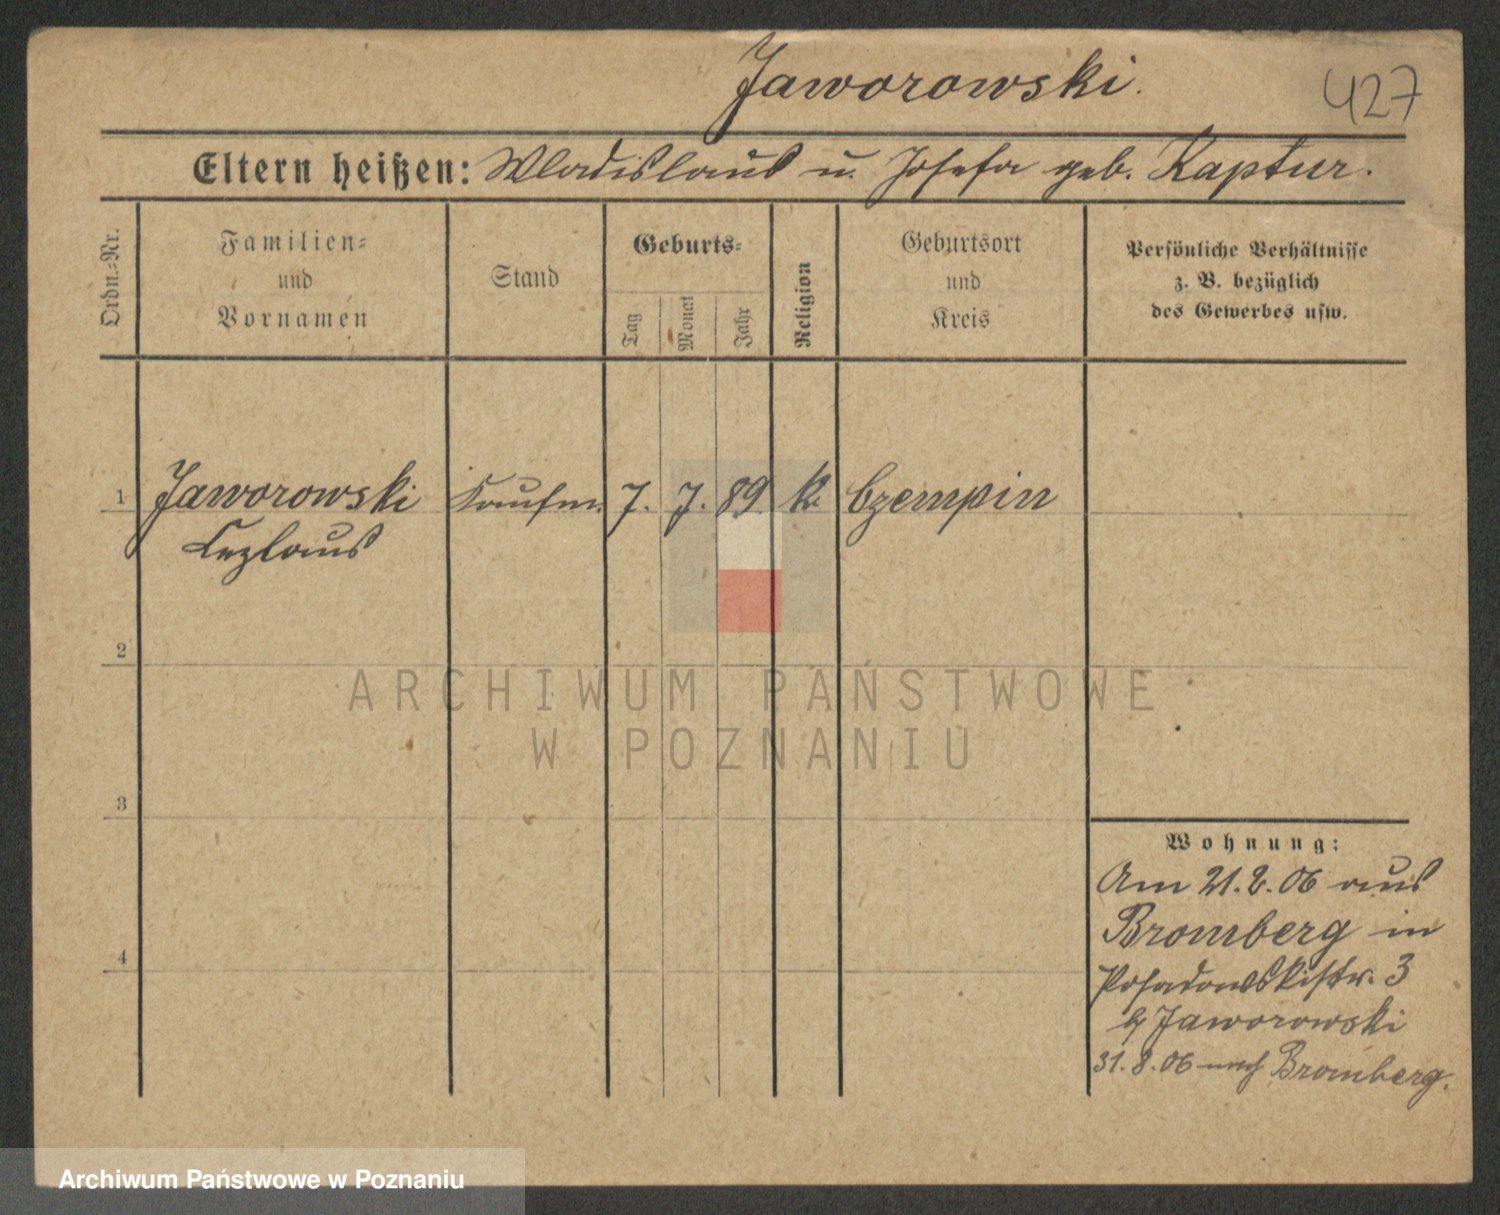 Jaworowski.
427
Eltern heißen: Wladislaus u. Josefa geb. Kaptur.
Ordn.-Nr.
Familien-
und
Vornamen
Stand
Geburts-
Tag
Monat
Jahr
Religion
Geburtsort
und
Kreis
Persönliche Verhältnisse
z. B. bezüglich
des Gewerbes usw.
1 Jaworowski Kaufm. 7. 7. 89 k. Czempin
Cezlaus
2
ARCHIWUM PAŃSTWOWE
W POZNANIU
3
Wohnung:
Am 21.2.06 aus
Bromberg in
Posadowskistr. 3
b/ Jaworowski
4
31.8.06 nach Bromberg.
Archiwum Państwowe w Poznaniu